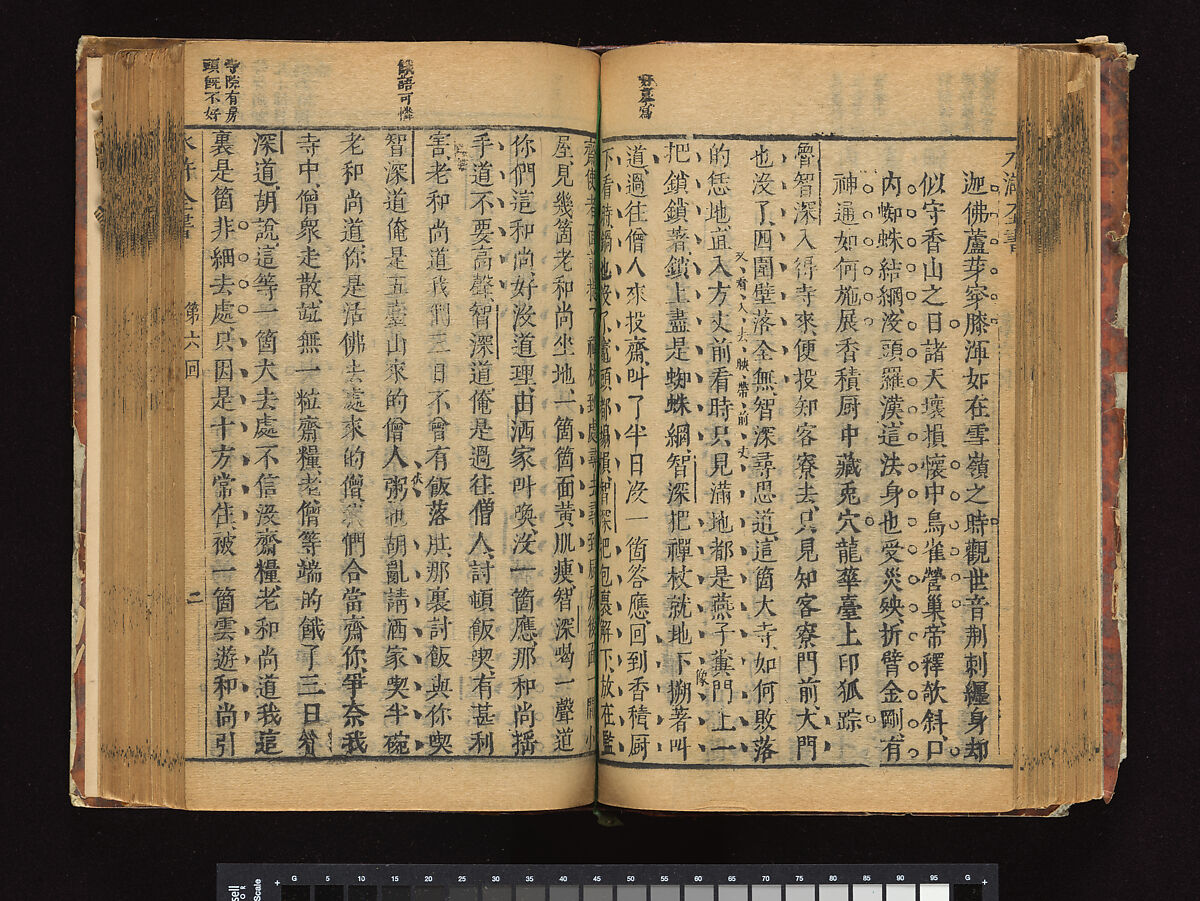 迦佛蘆芽穿膝渾如在雪嶺之時觀世音荊刺纏身却
似守香山之日諸天壞損懷中鳥雀營巢帝釋欹斜口
内蜘蛛結網沒頭羅漢這法身也受災殃折臂金剛有
神通如何施展香積厨中藏兎穴龍華臺上印狐踪
魯智深入得寺來便投知客寮去只見知客寮門前大門
也沒了四圍壁落全無智深尋思道這箇大寺如何敗落
的恁地直入方丈前看時只見滿地都是燕子糞門上一
把鎖鎖著鎖上盡是蜘蛛網智深把禪杖就地下搠著叫
道過往僧人來投齋叫了半日沒一箇答應回到香積厨
下看時鍋也沒了竈頭都塌損智深把包裹解下放在監
屋見幾箇老和尚坐地一箇箇面黄肌瘦智深喝一聲道
你們這和尚好沒道理由洒家叫喚沒一箇應那和尚搖
手道不要高聲智深道俺是過往僧人討頓飯喫有甚利
害老和尚道我們三日不曾有飯落肚那裏討飯與你喫
智深道俺是五臺山來的僧人粥也胡亂請洒家喫半碗
老和尚道你是活佛去處來的僧我們合當齋你爭奈我
寺中僧衆走散並無一粒齋糧老僧等端的餓了三日智
深道胡說這等一箇大去處不信沒齋糧老和尚道我這
裏是箇非細去處只因是十方常住被一箇雲遊和尚引
第六回
二
餓語可憐
寺院有房
頭既不好